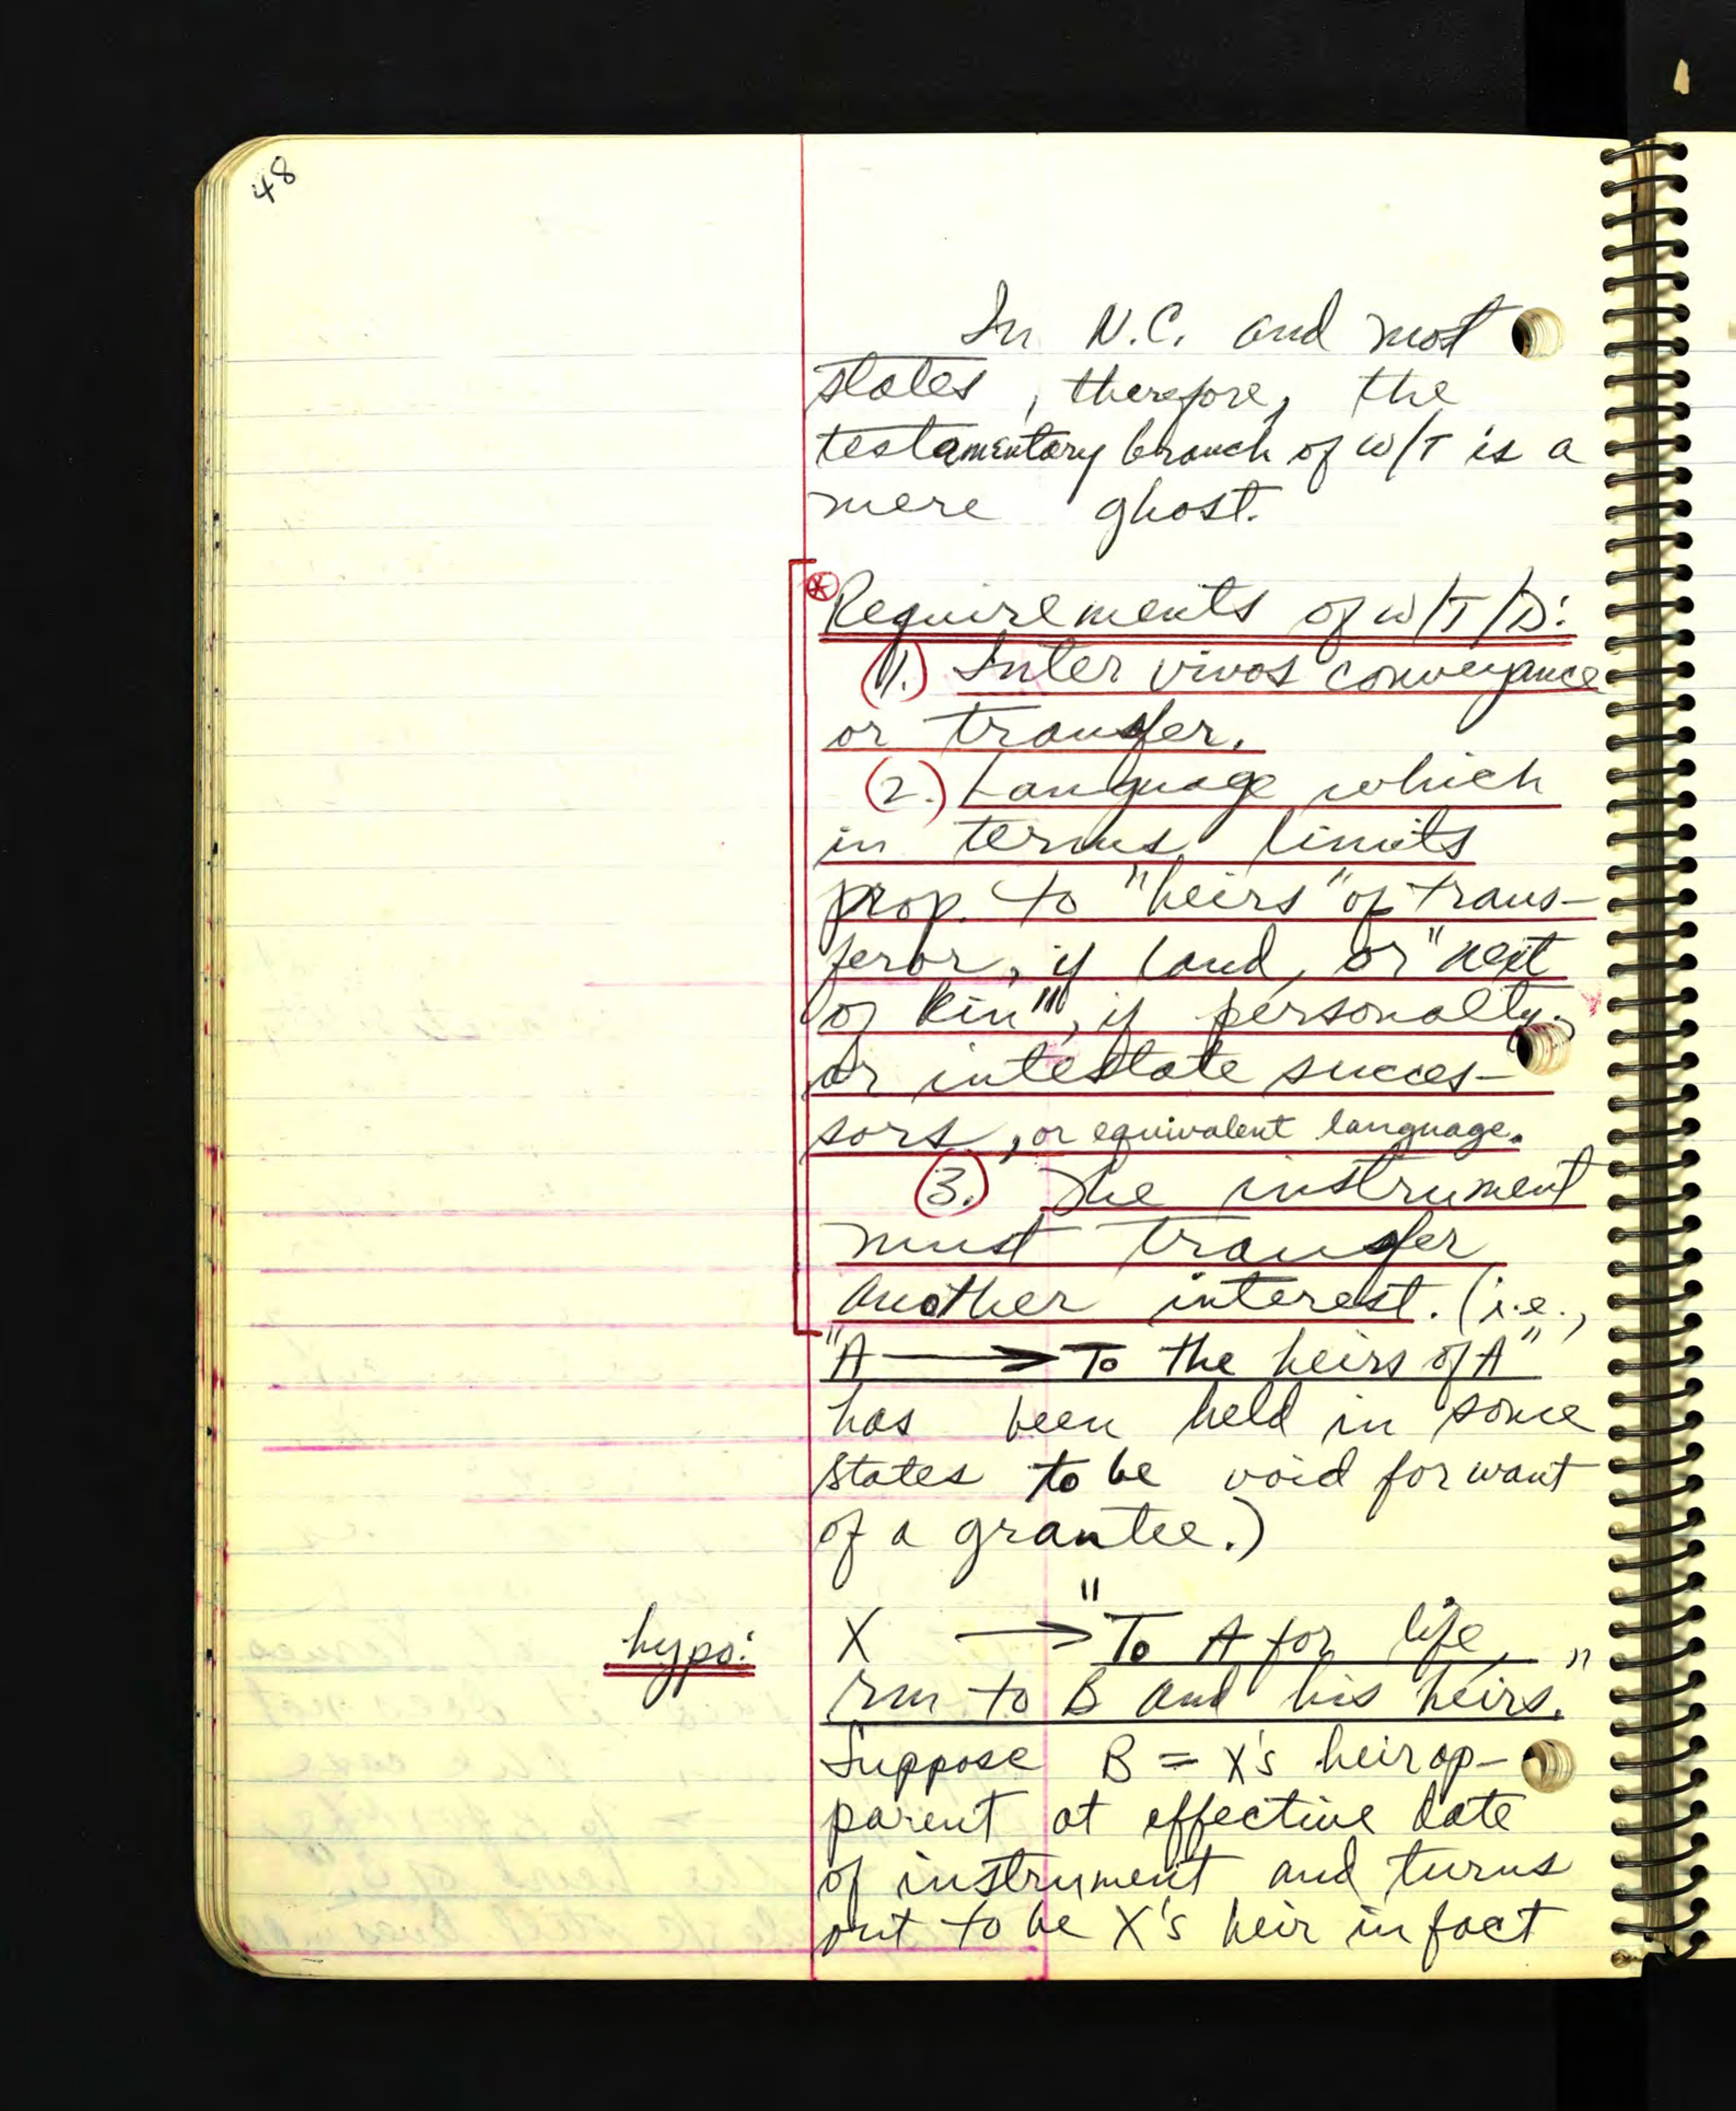 48
In N.C. and most
states, therefore, the
testamentary branch of W/T is a
mere ghost.
Requirements of W/T/D:
(1.) Inter vivos conveyance
or transfer.
(2.) Language which
in terms limits
prop. to "heirs" of trans-
feror, if land, or "next
of kin", if personalty,
or intestate succes-
sors, or equivalent language.
(3.) The instrument
must transfer
another interest. (i.e.,
"A → To the heirs of A"
has been held in some
states to be void for want
of a grantee.)
hypo: X → "To A for life,
rm to B and his heirs."
Suppose B = X's heir ap-
parent at effective date
of instrument and turns
out to be X's heir in fact